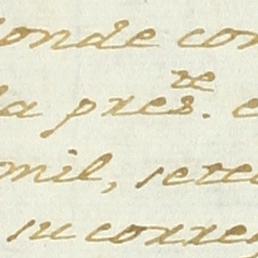 onde con
la pres.te e
mil, sete
incorre